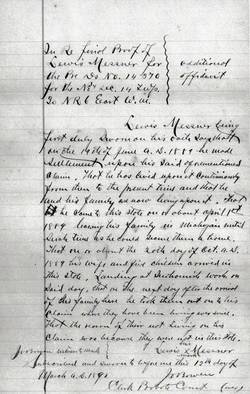 In Re final Proof of
Lewis Messner for additional
the Pre Ds No. 14370 affidavit
for the NW¼ sec. 14 Twp.
30 NR 6 East W. M.
Lewis Messner being
first duly sworn on his oath says that
on the 19th of June A.D. 1889 he made
settlement upon his said
claim. That he has lived upon it continuously
from then to the present time and that he
and his family are now living upon it. That
he came to this state on or about April 1st
1889 leaving his family in Michigan until
such time as he could them a home.
That on or about the 20th day of Oct A.D.
1889 his wife and five children arrived in
this state. Landing at Snohomish on
said day, that on the next day after the arrival
of this family here he took them out on to his
claim where they have been living ever since.
That the reason of their not living on his
claim was because they were not in this state.
Lewis Messner
Subscribed and sworn to before me this 12th day of
March A.D. 1890
Clerk Court